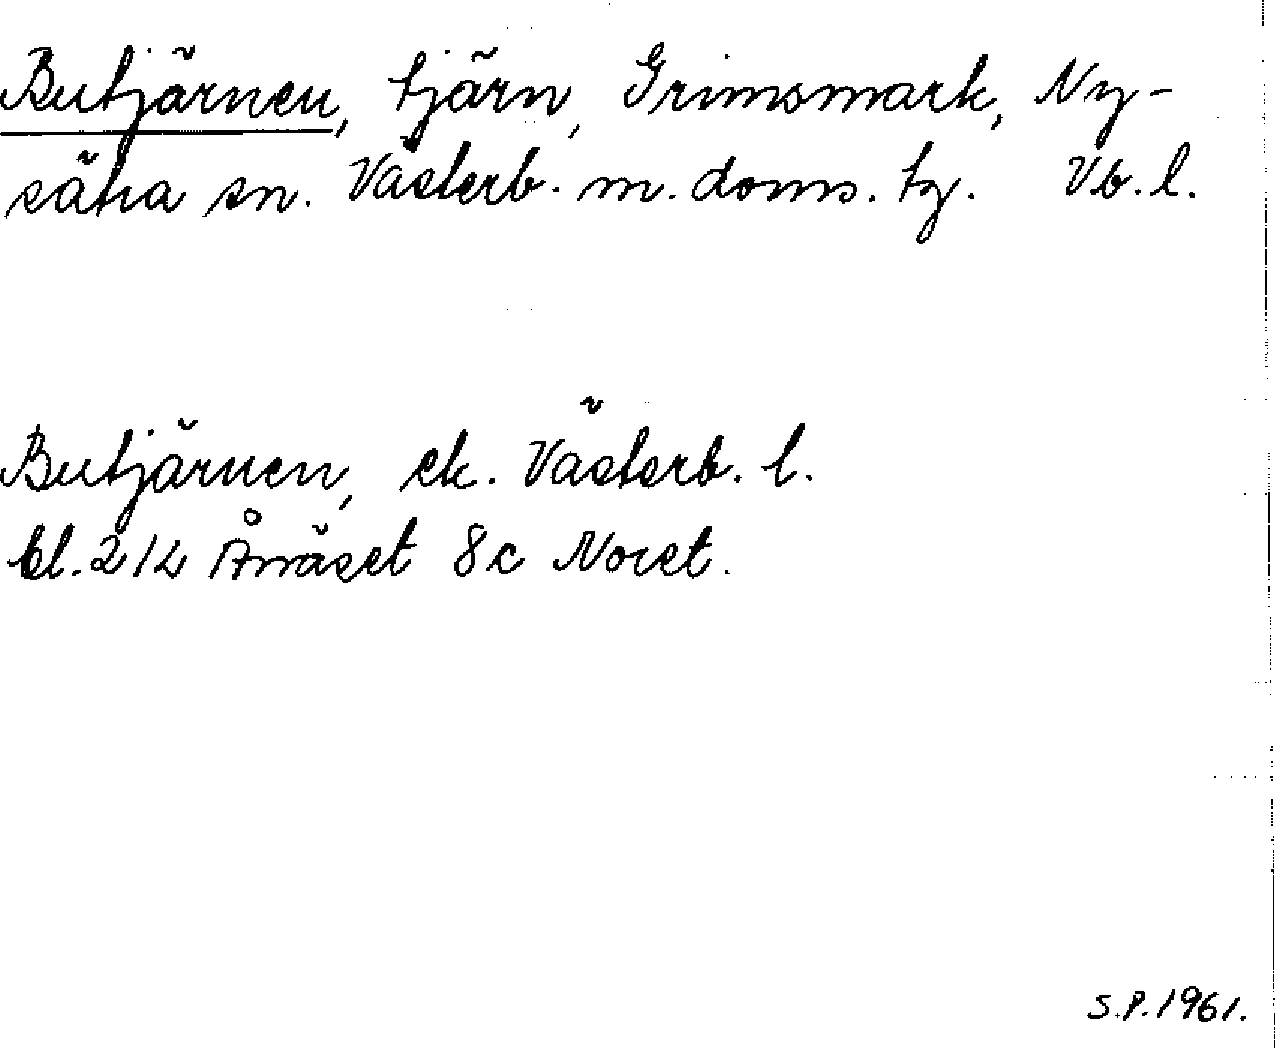 Butjärnen, tjärn, Grimsmark, Ny-
sätra sn. Västerb. m. doms. tg. Vb. l.
Butjärnen, ek. Västerb. l.
bl. 214 Ånäset 8c Noret.
S.P. 1961.